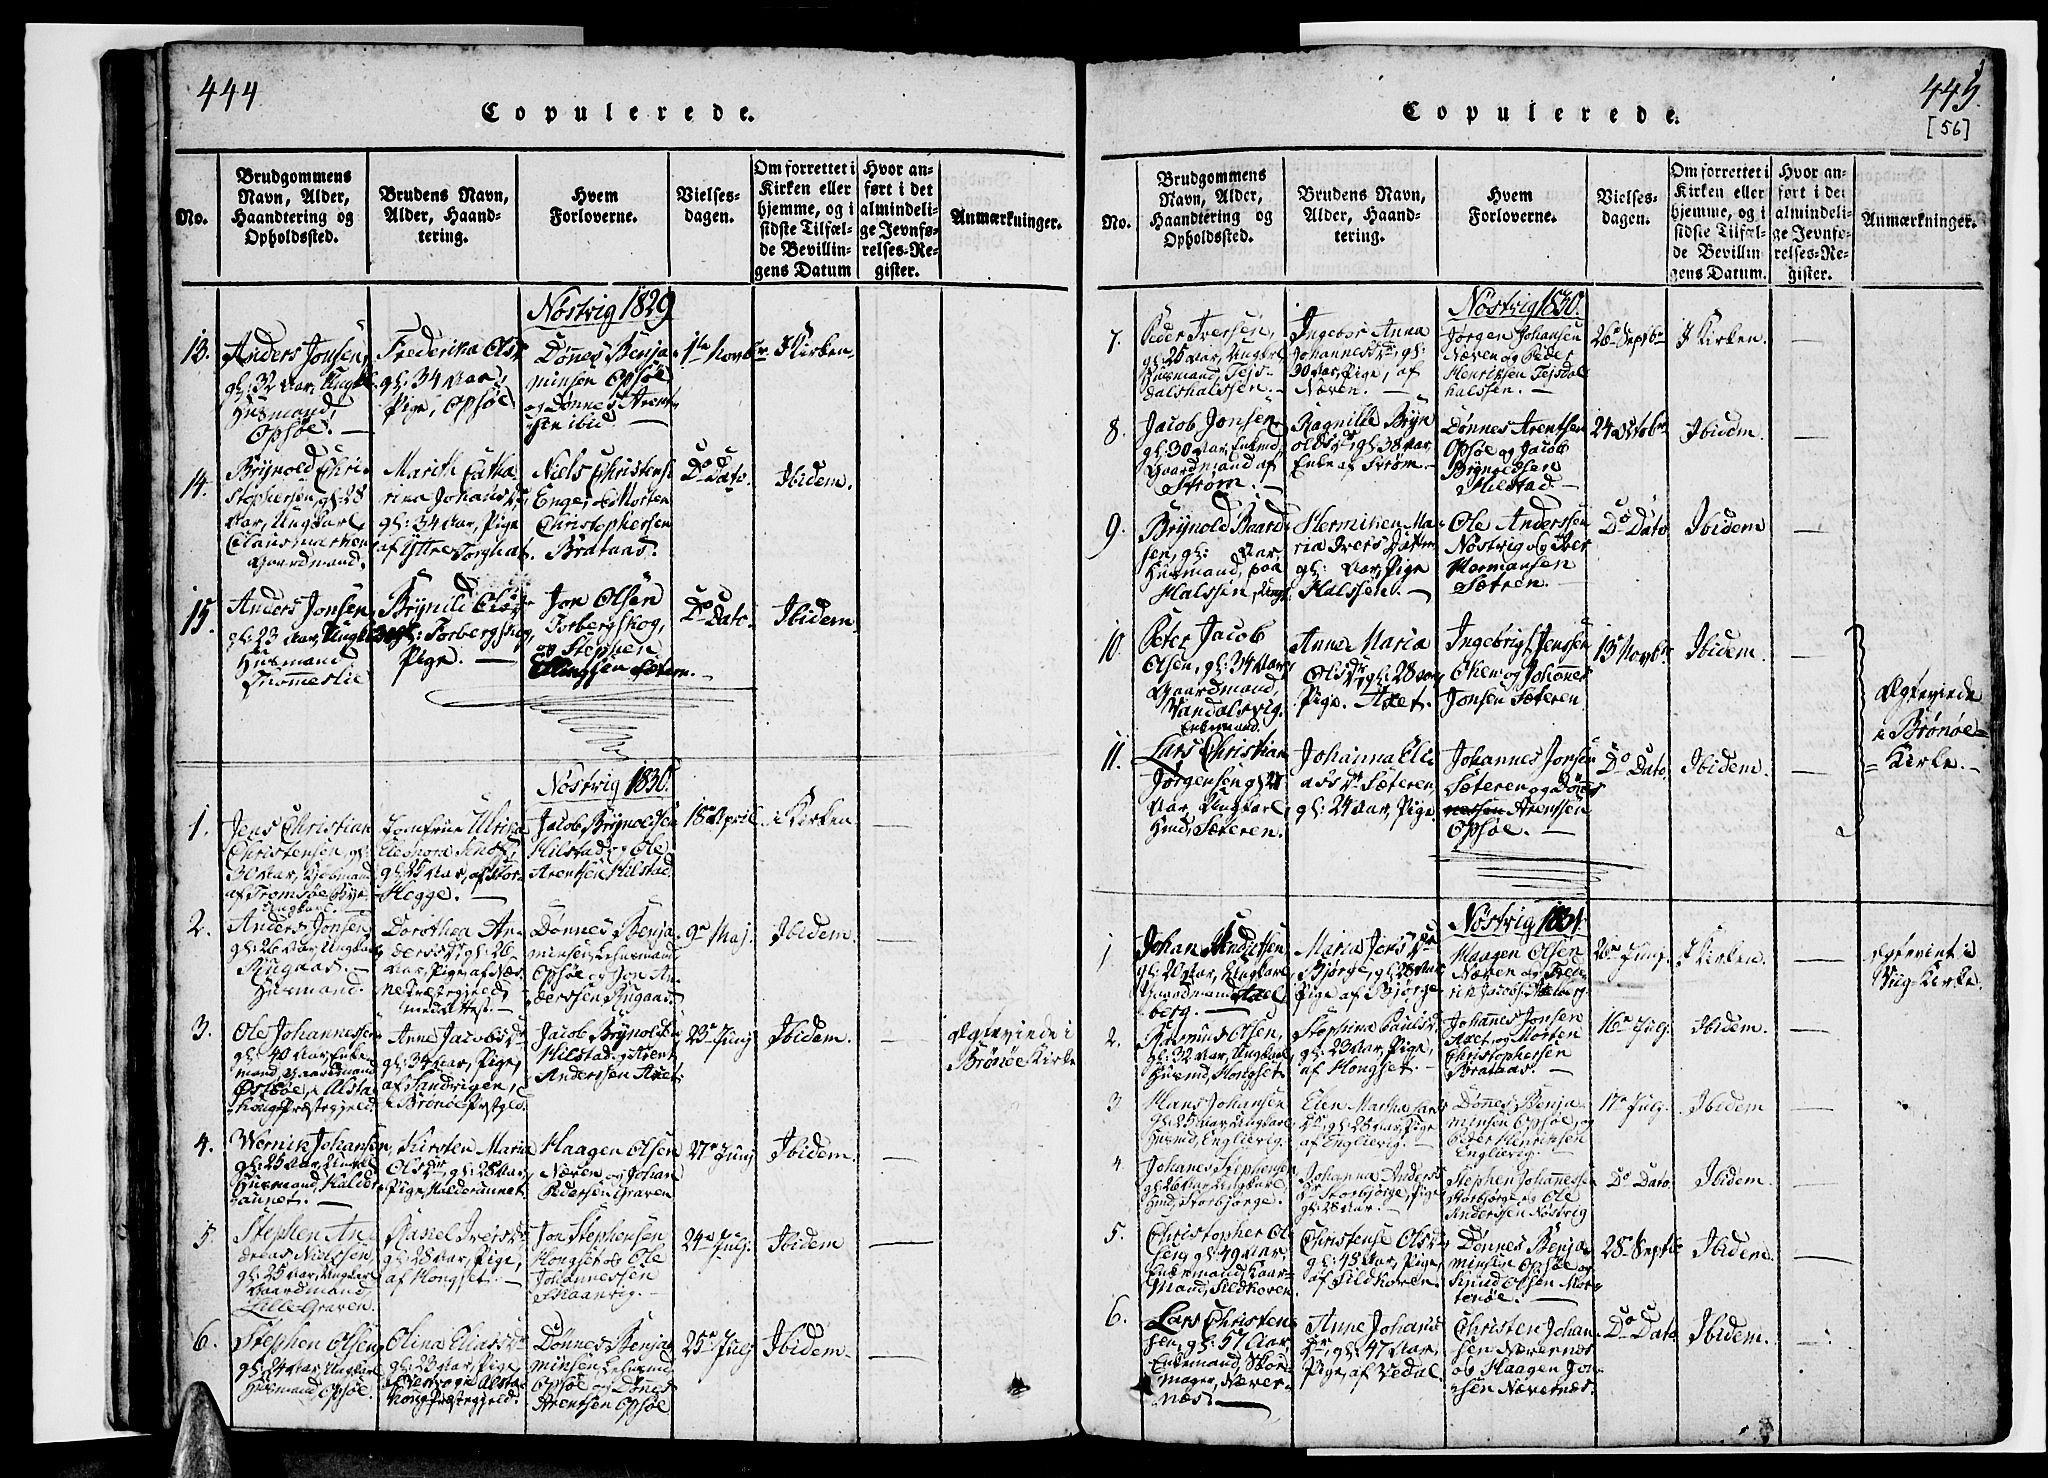 444
Copulerede.
No.
Brudgommens
Navn, Alder,
Haandtering og
Opholdssted.
Brudens Navn,
Alder, Haand-
tering.
Hvem
Forloverne.
Vielses-
dagen.
Om forrettet i
Kirken eller
hjemme, og i
sidste Tilfæl-
de Bevillin-
gens Datum
Hvor an-
ført i det
almindeli-
ge Jevnfø-
relses-Re-
gister.
Anmærkninger.
Nöstvig 1829
13.
Anders Jonsen,
gl: 32 Aar, Ungk.
Huusmand,
Opsöe.
Frederika Ols
gl: 34 Aar,
Pige, Opsöe
Dönnes Benja-
minsen Opsöe
og Dönnes Arent-
sen ibid
1te Novbr
I Kirken
14.
Brÿnold Chri-
stophersen, gl: 28
Aar, Ungkarl
Clausmarken
Gaardmand.
Marith Catha-
rina Johansdr,
gl: 34 Aar, Pige
af Yttre Torghat.
Niels Christens.
Enge, og Morten
Christophersen
Brataas.
Do Dato
Ibidem.
15.
Anders Jonsen
gl: 23 Aar, Ungk
Huusmand
Trommeslie
Torbergskog,
Pige.
Jon Olsen
Torbergskog,
og Stephen
Ellingsen Sætern.
Do Dato
Ibidem.
Nöstvig 1830.
1.
Jens Christian
Christensen, gl:
af Tromsöe Bye
Ungkarl.
Jomfrue Ulrica
Eleonora
gl: 25 Aar, af Stor-
Hegge.
Jacob Brÿnoldsen
Hilstad og Ole
Arentsen Hilstad.
18de April
i Kirken
2.
Anders Jonsen
gl: 26 Aar, Ungkarl
Ringaas.
Huusmand.
Dorothea An-
dersdr, gl: 26
Aar, Pige, af Næs-
ne Præstegjeld,
med Attest.
Dönnes Benja-
minsen, Lehnsmand
Opsöe og Jon An-
derssen Ringaas
9de Maj.
Ibidem.
3.
Ole Johannessen
gl: 40 Aar, Enke-
mand, Gaardmand
i Alsta-
hougs Præstegjeld.
Anne Jacobsdr
gl: 34 Aar, Pige,
af Sandvigen,
i Brönöe Præstgld.
Jacob Brÿnolds.
Hilstad, og Arent
Anderssen Axet
23de Junj
Ibidem.
Ægteviede i
Brönöe Kirke
4.
Wernik Johansen
gl: 25 Aar, Ungkl
Huusmand, Halder-
aunet.
Kirsten Maria
Olsdr, gl: 28 Aar,
Pige, Halderaunet
Haagen Olsen
Næven og Johan
Pedersen Graven
27de Junj
Ibidem.
5.
Stephen An-
dreas Nielssen,
gl: 25 Aar, Ungkarl
Gaardmand,
Lille Graven.
Karel Iversdr
gl: 28 Aar, Pige,
af Hongset.
Jon Stephensen
Hongset og Ole
Johannessen
Skaanvig.
24de Julj.
Ibidem
6.
Stephen Olsen
gl: 24 Aar, Ungkarl
Huusmand Opsöe.
Olina Eliasdr
gl: 23 Aar, Pige
af Alsta-
houg Præstegjeld.
Dönnes Benja-
minsen Lehnsmd
Opsöe og Dönnes
Arentsen Opsöe
25de Julj
Ibidem.
445.
[56]
Copulerede.
No.
Brudgommens
Navn, Alder,
Haandtering og
Opholdssted.
Brudens Navn,
Alder, Haand-
tering.
Hvem
Forloverne.
Vielses-
dagen.
Om forrettet i
Kirken eller
hjemme, og i
sidste Tilfæl-
de Bevillin
gens Datum.
Hvor an-
ført i det
almindeli-
ge Jevnfø-
relses-Re-
gister.
Anmærkninger.
Nöstvig 1830.
7.
Peder Iversen,
gl: 25 Aar, Ungkrl
Huusmand, Tejs-
dalshalssen.
Ingebor Anna
Johannesdr, gl:
30 Aar, Pige, af
Næven.
Jörgen Johansen
Næven og Peder
Henriksen Tejsdal
halssen.
26de Septbr
I Kirken.
8.
Jacob Jonsen
gl: 30 Aar, Enkmd,
Gaardmand af
Ström.
Ragnille Brÿn
oldsdr, gl: 38 Aar,
Enke af Ström.
Dönnes Arentsen
Opsöe og Jacob
Brÿnoldsen
Hilstad.
24 Octobr
Ibidem.
9.
Brÿnold Baard
sen, gl: Aar,
Huusmand, paa
Halssen, Ungk.
Hermiken Ma-
ria Ivers Datter
gl: Aar, Pige
Halssen.
Ole Anderssen
Nöstvig og Iver
Hermansen
Sætren.
Do Dato
Ibidem
10.
Peter Jacob
Olsen, gl: 34 Aar,
Gaardmand,
Vandalsvig.
Enkemand.
Anne Maria
Olsdr, gl: 28 Aar
Pige. Axet.
Ingebrigt Jenssen
Johannes
Jonsen Sæteren
13de Novbr
Ibidem.
Ægteviede
i Brönöe
Kirke.
11.
Lars Christian
Jörgensen gl:
Aar, Ungkarl
Huusmd, Sæteren.
Johanna Eli-
asdr Sæteren
gl: 24 Aar, Pige
Johannes Jonsen
Sæteren og Dönnes
Arentsen
Opsöe.
Do Dato
Ibidem.
Nöstvig 1831.
1
Johan Andersen
gl: 20 Aar, Ungkarl
Gaardmand Axel
berg.
Maria Jensdr
Bjørge, gl: 28 Aar
Pige af Bjørge
Haagen Olsen
Næven og Frede-
rik Jacobs. Axelberg.
26de Junj.
I Kirken.
Ægteviet i
Viig Kirke.
2.
Rasmus Olsen,
gl: 32 Aar, Ungkarl
Huusmd, Hongset.
Stephina Paulsd.
gl: 23 Aar, Pige,
af Hongset.
Johannes Jonsen
Axet, og Morten
Christophersen
Brataas.
16de Julj.
Ibidem.
3
Hans Johansen
gl: 25 Aar Ungkarl
Huusmd, Englievig.
Elen Martha Lars
Dr, gl: 28 Aar, Pige
af Englievig.
Dönnes Benja-
minsen Opsöe, og
Peter Henriksen
Englievig.
17de Julj.
Ibidem
4
Johanes Stephensen
gl: 26 Aar Ungkarl
Huusmd, Storbjørge.
Johanna Anders
Dr Storbjørge, Pige
gl: 28 Aar.
Stephen Johannessen
Storbjørge og Ole
Anderssen Nöstvig
Do Dato
Ibidem.
5.
Christopher Ol-
sen gl: 49 Aar,
Enkemand Gaar-
mand, Sildkoren
Christense Olsdr,
gl: 48 Aar, Pige
af Sildkoren.
Dönnes Benja-
minsen Opsöe og
Knud Olsen Mor-
tenöe.
28de Septbr
Ibidem.
6.
Lars Christen-
sen, gl: 57 Aar,
Enkemand, Skoe-
mager, Næver-
næs.
Anne Johans
Dr, gl: 47 Aar,
Pige, af Vedal.
Christen Johan-
sen Nævernæs
og Haagen Jon-
sen Nævernæs.
Do Dato
Ibidem.